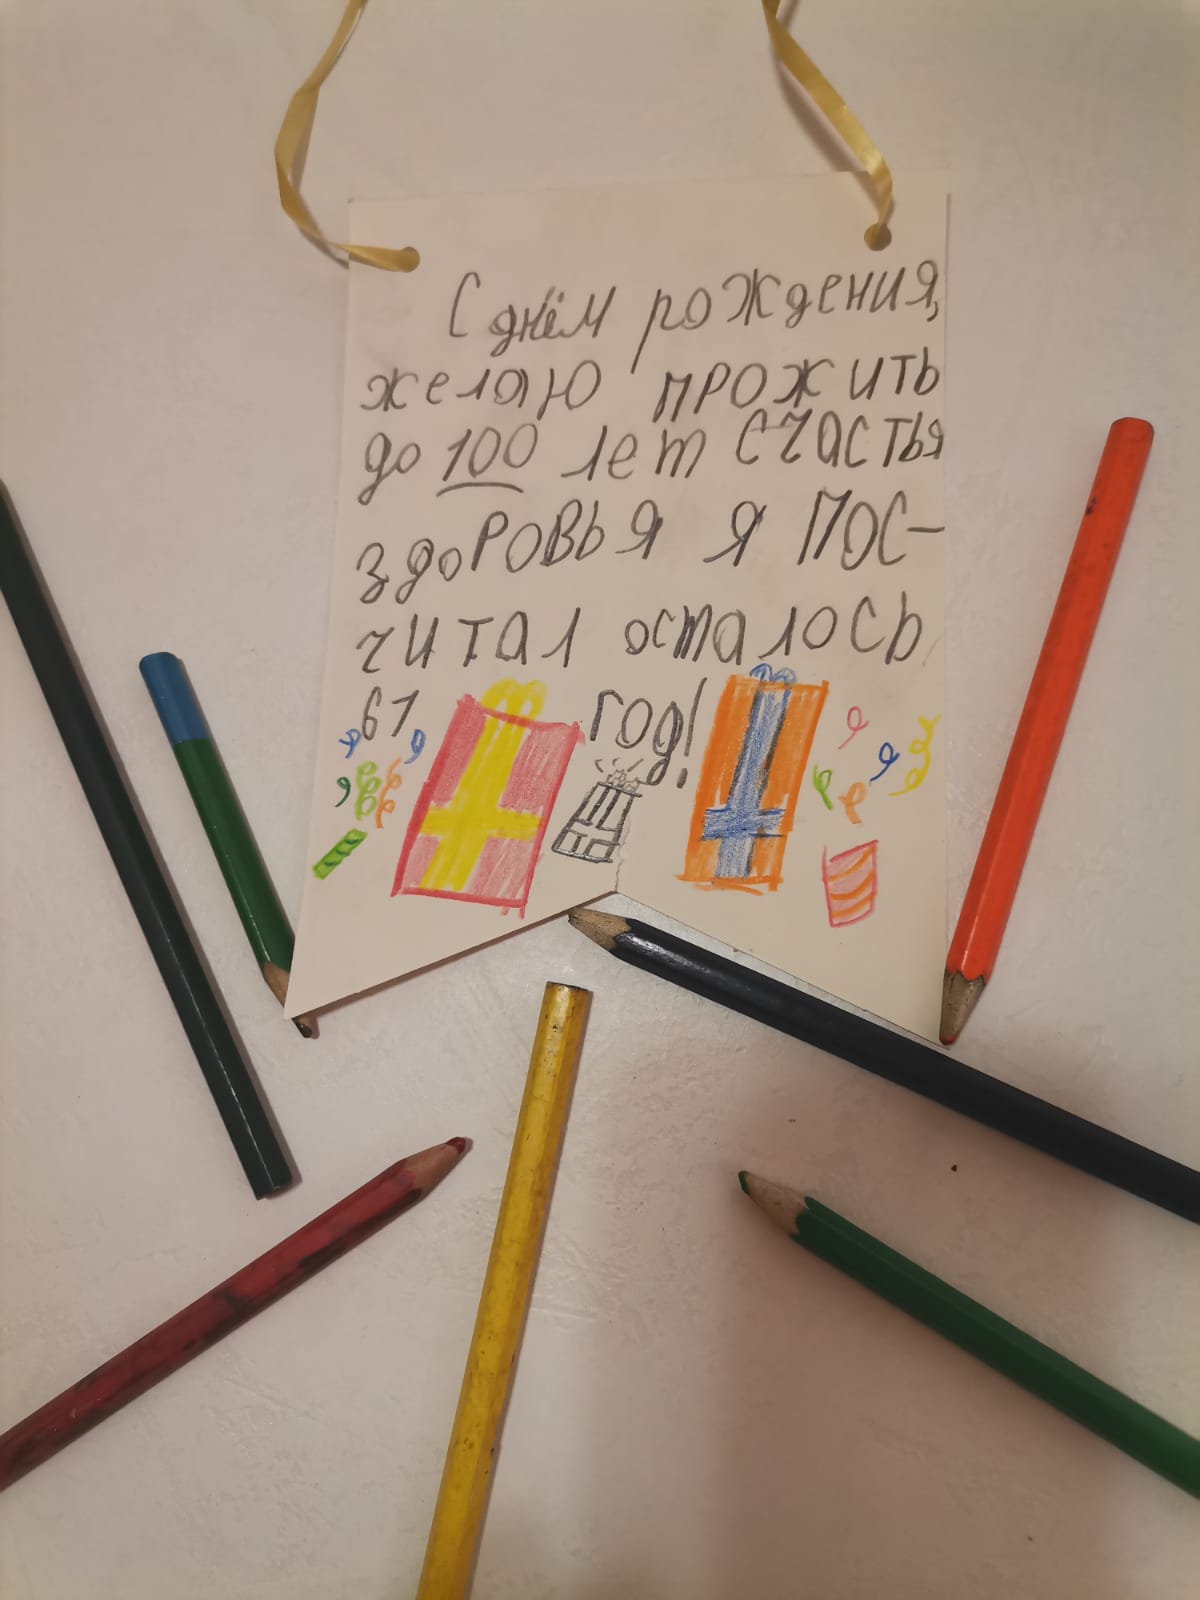 С днём рождения,
желаю прожить
до 100 лет счастья
здоровья я пос-
читал осталось
61 год!